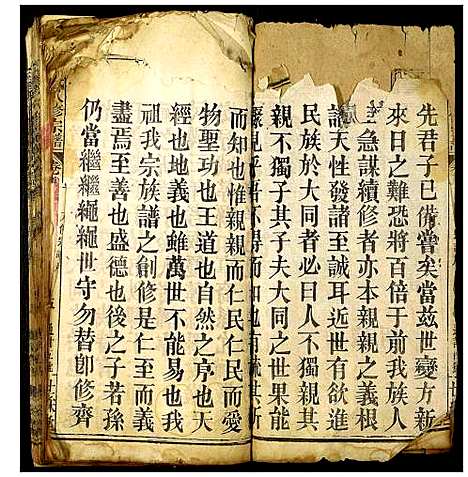 先君子已備嘗矣當茲世變方新
來日之難恐將百倍于前我族人
急謀續修者亦本親親之義根
諸天性發諸至誠耳世有欲進
民族於大同者必曰人不獨親其
親不獨子其子夫大同之世果能
而知也惟親親而仁民仁民而愛
物聖功也王道也自然之序也天
經也地義也雖萬世不能易也我
祖我宗族譜之創修是仁至而義
盡焉至善也盛德也後之子若孫
仍當繼繼繩繩世守勿替卽修齊